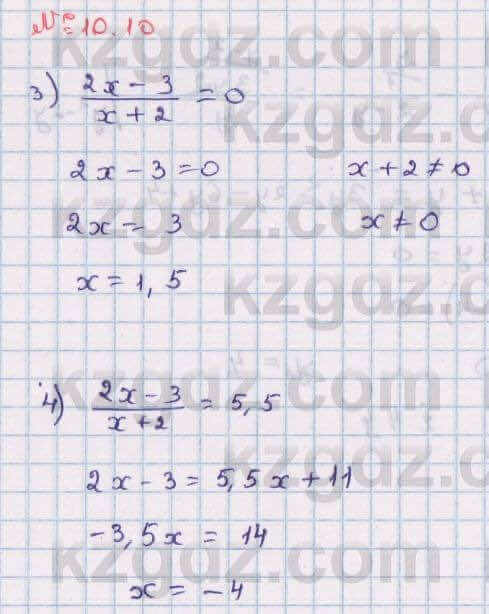 № 10.10
3) (2x - 3)/(x + 2) = 0
2x - 3 = 0 x + 2 ≠ 0
2x = 3 x ≠ 0
x = 1,5
4) (2x - 3)/(x + 2) = 5,5
2x - 3 = 5,5x + 11
-3,5x = 14
x = -4
kzgdz.com
kzgdz.com
kzgdz.com
kzgdz.com
kzgdz.com
kzgdz.com